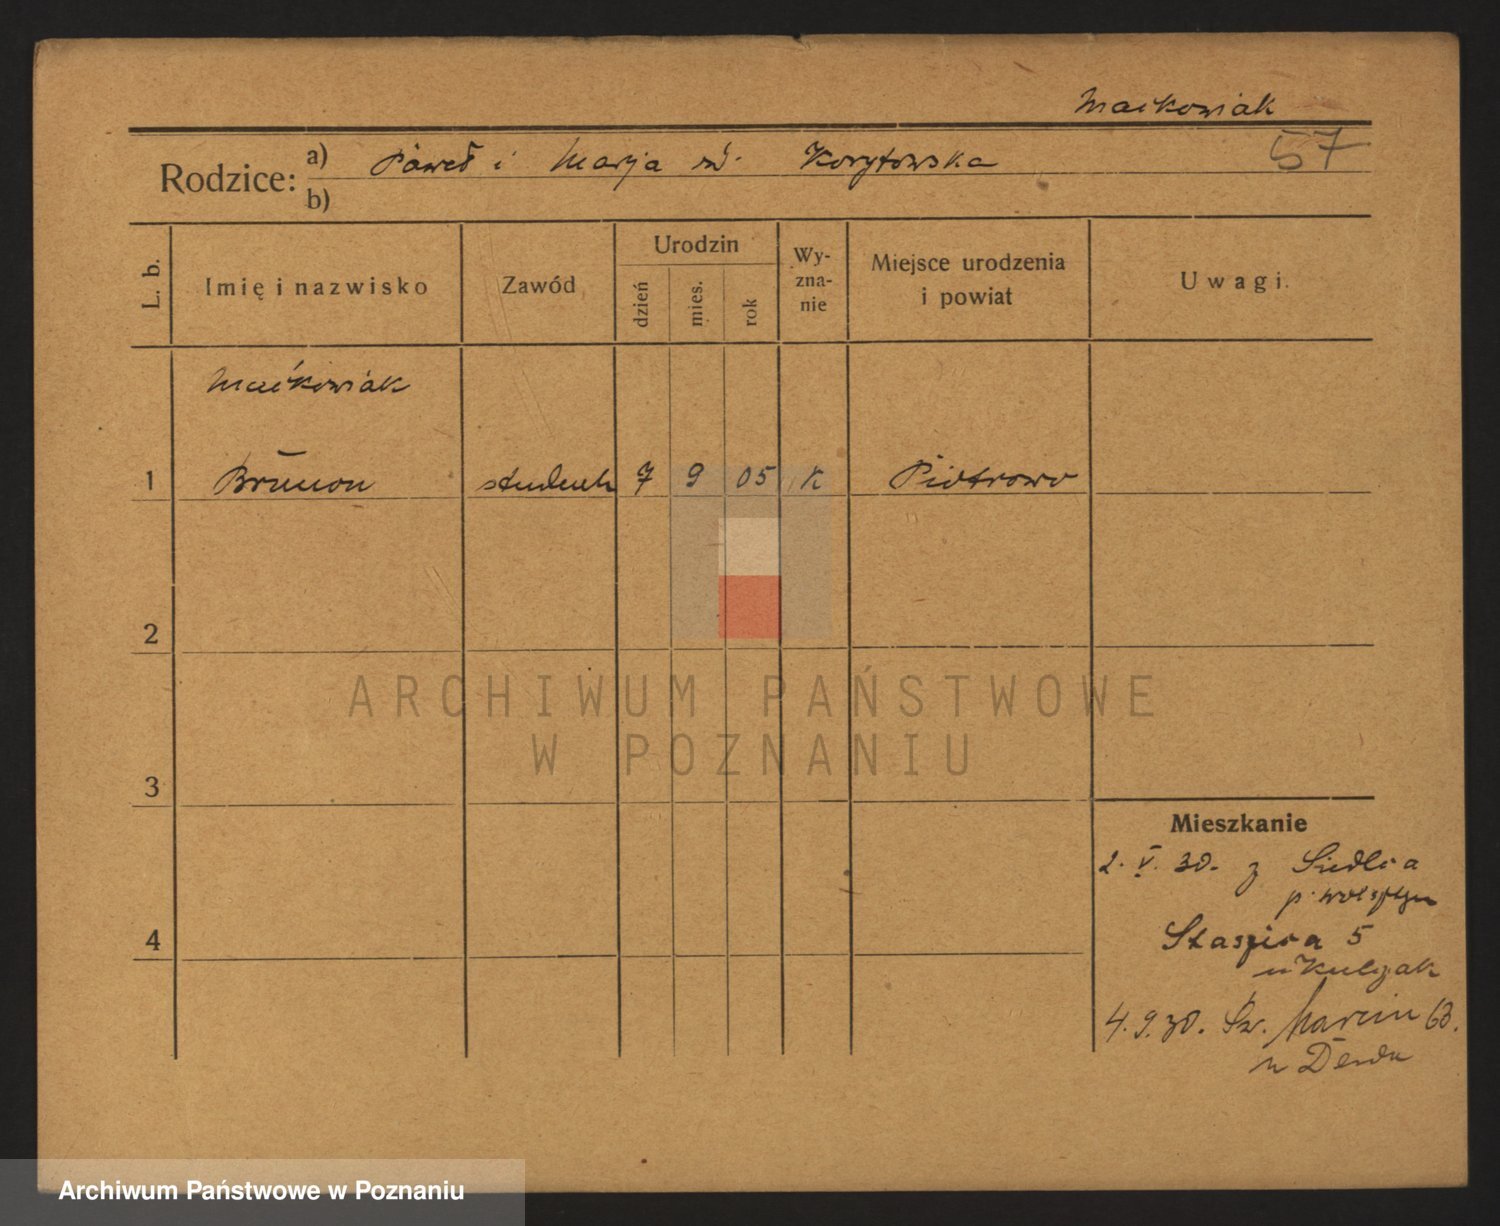 Maćkowiak
57
Rodzice: a) Paweł i Marja ur. Korytowska
b)
L. b.
Imię i nazwisko
Zawód
Urodzin
dzień
mies.
rok
Wy-
zna-
nie
Miejsce urodzenia
i powiat
Uwagi.
Maćkowiak
1 Brunon student 7 9 05 k Piotrowo
2
3
4
ARCHIWUM PAŃSTWOWE
W POZNANIU
Mieszkanie
2. V. 30. z Siedlca
p. Wolsztyn
Staszica 5
u Kulczak
4. 9. 30. Św. Marcin 63.
u
Archiwum Państwowe w Poznaniu